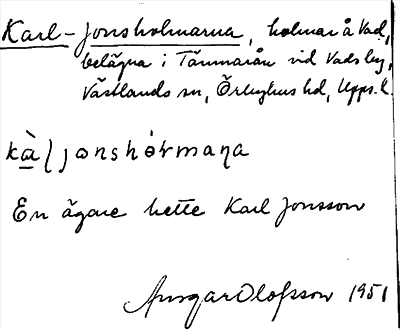 Karl-Jonsholmarna, holmar å Vad,
belägna i Tämnarån vid Vads by,
Västlands sn, Örbyhus hd, Upps. l.
kàljonshòrmaŋa
En ägare hette Karl Jonsson
Ansgar Olofsson 1951